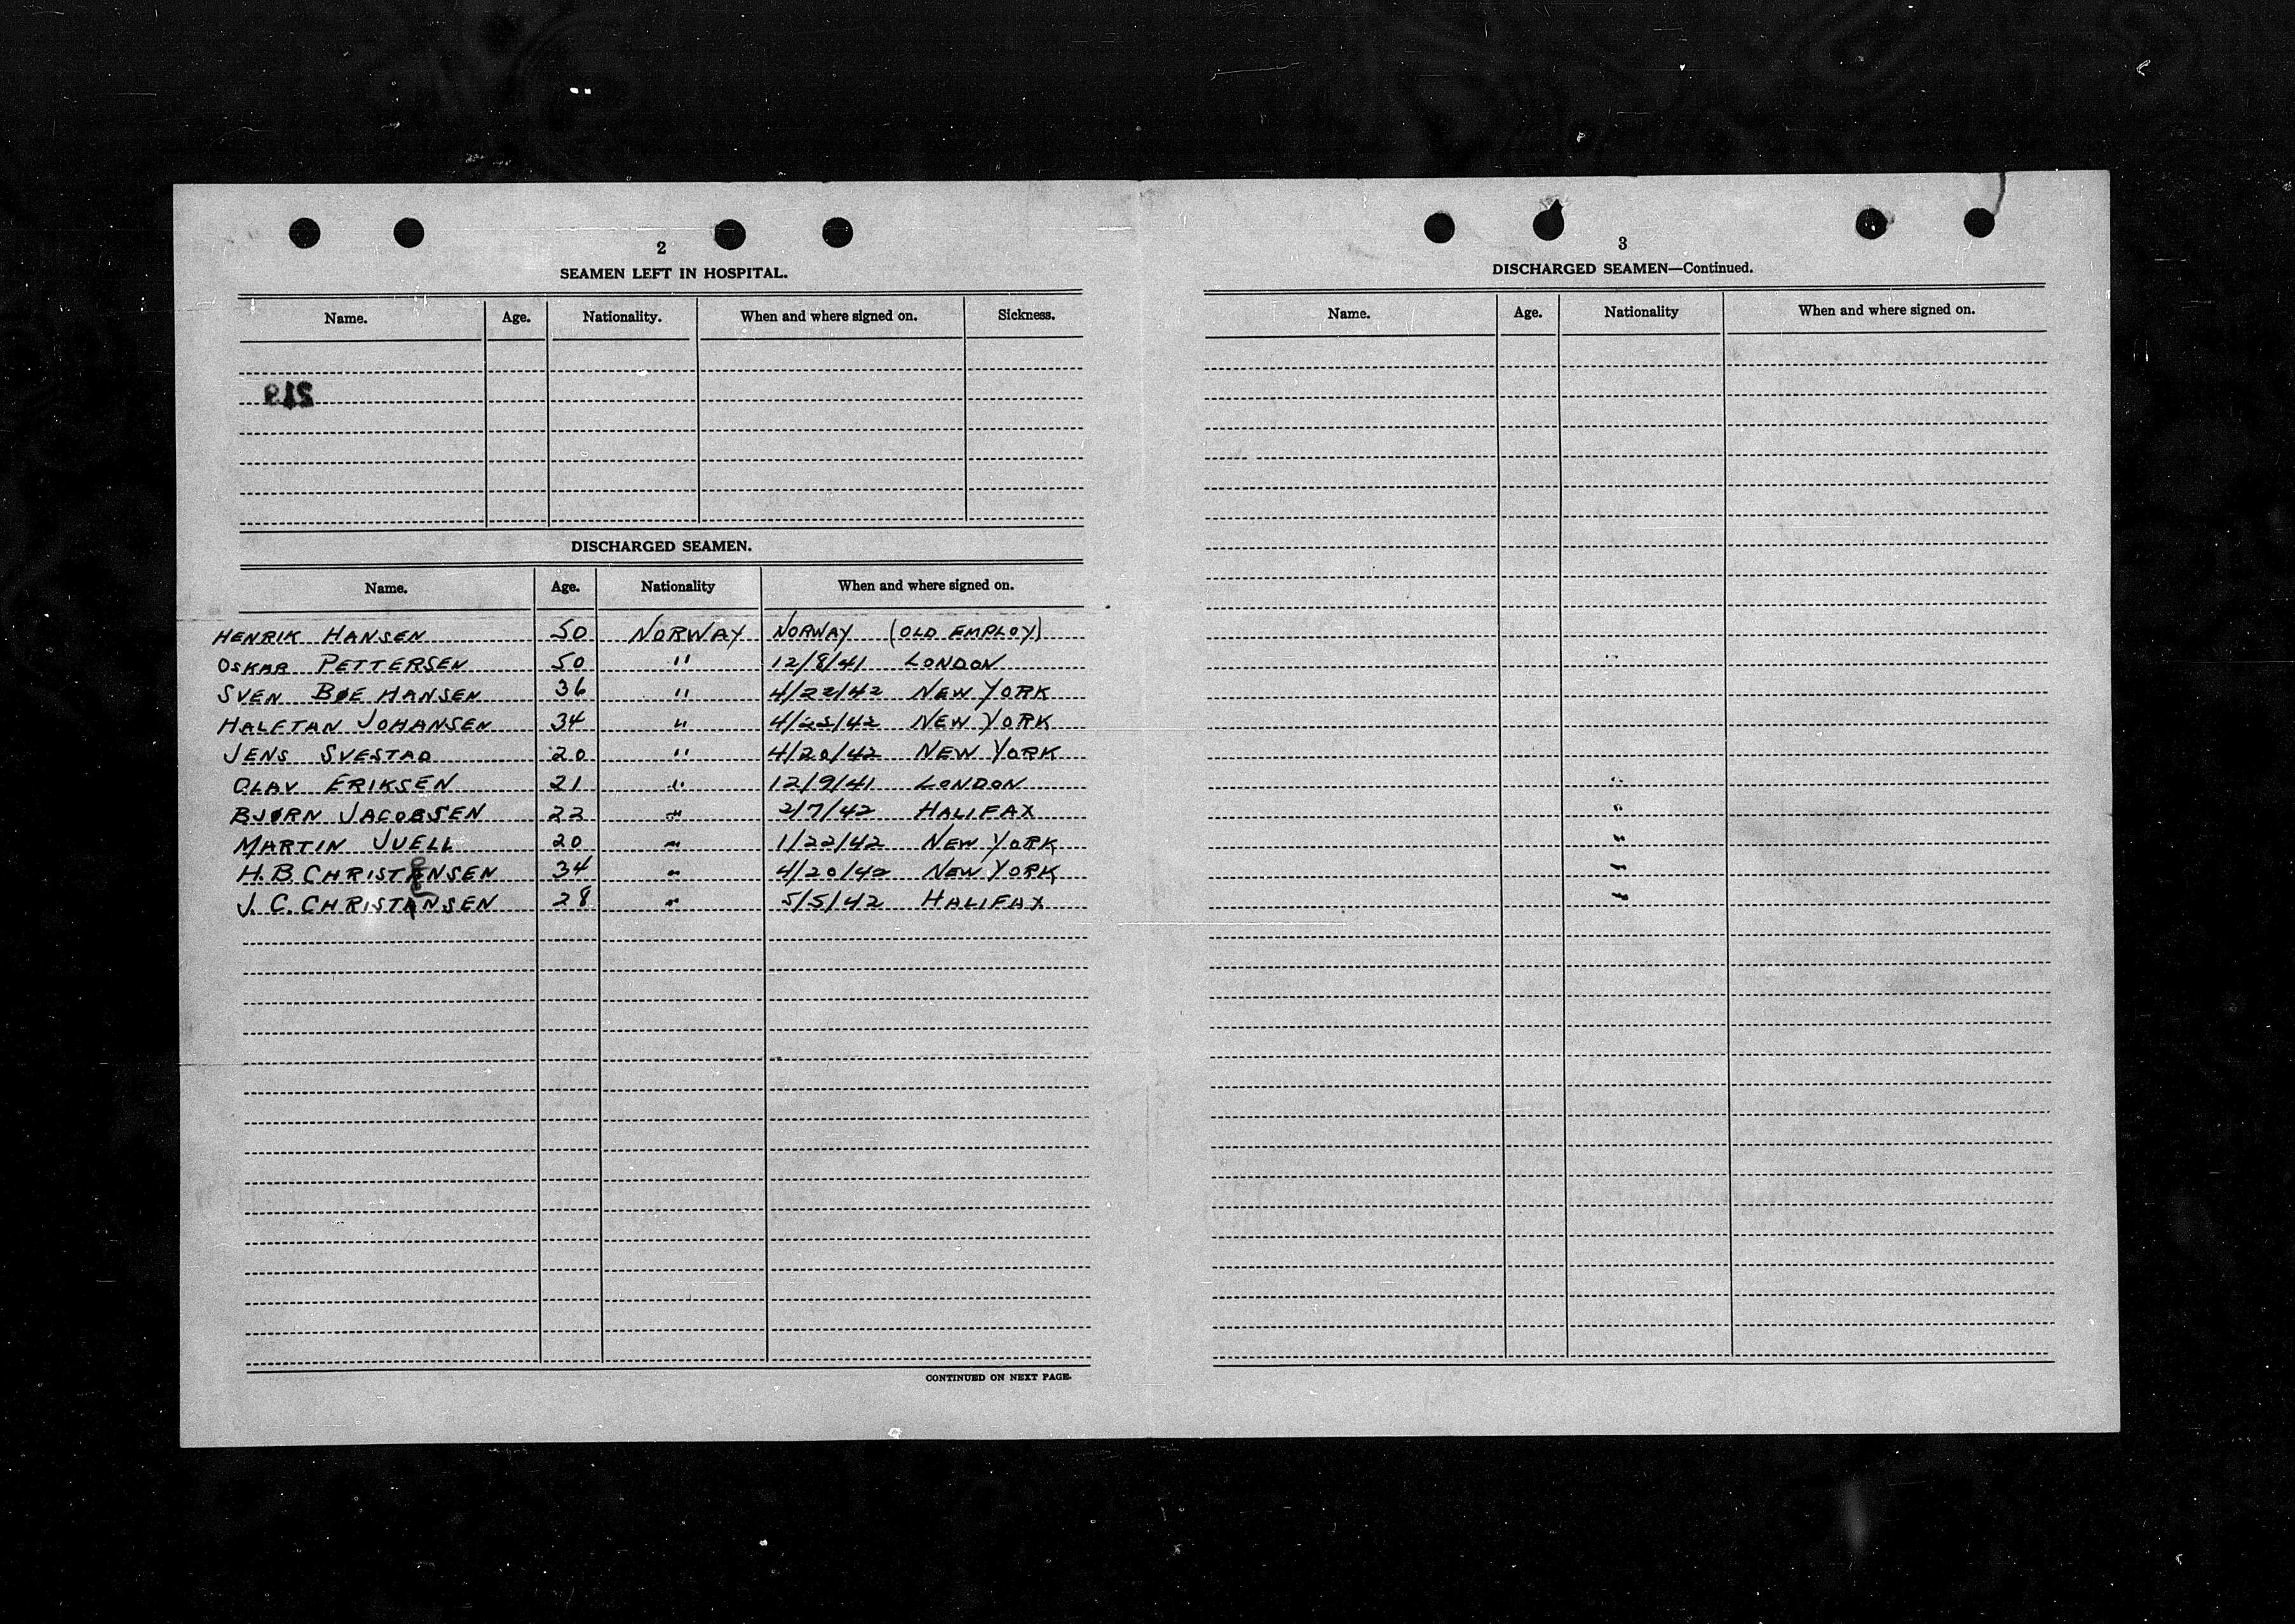 2
SEAMEN LEFT IN HOSPITAL.
Name. Age. Nationality. When and where signed on. Sickness.
219
DISCHARGED SEAMEN.
Name. Age. Nationality When and where signed on.
HENRIK HANSEN 50 NORWAY NORWAY (OLD EMPLOY)
OSKAR PETTERSEN 50 " 12/8/41 LONDON
SVEN BØE HANSEN 36 " 4/22/42 NEW YORK
HALFTAN JOHANSEN 34 " 4/22/42 NEW YORK
JENS SVESTAD 20 " 4/20/42 NEW YORK
OLAV ERIKSEN 21 " 12/9/41 LONDON
BJØRN JACOBSEN 22 " 2/7/42 HALIFAX
MARTIN JUELL 20 " 1/22/42 NEW YORK
H.B. CHRISTENSEN 34 " 4/20/42 NEW YORK
J.C. CHRISTENSEN 28 " 5/5/42 HALIFAX
CONTINUED ON NEXT PAGE.
3
DISCHARGED SEAMEN—Continued.
Name. Age. Nationality When and where signed on.